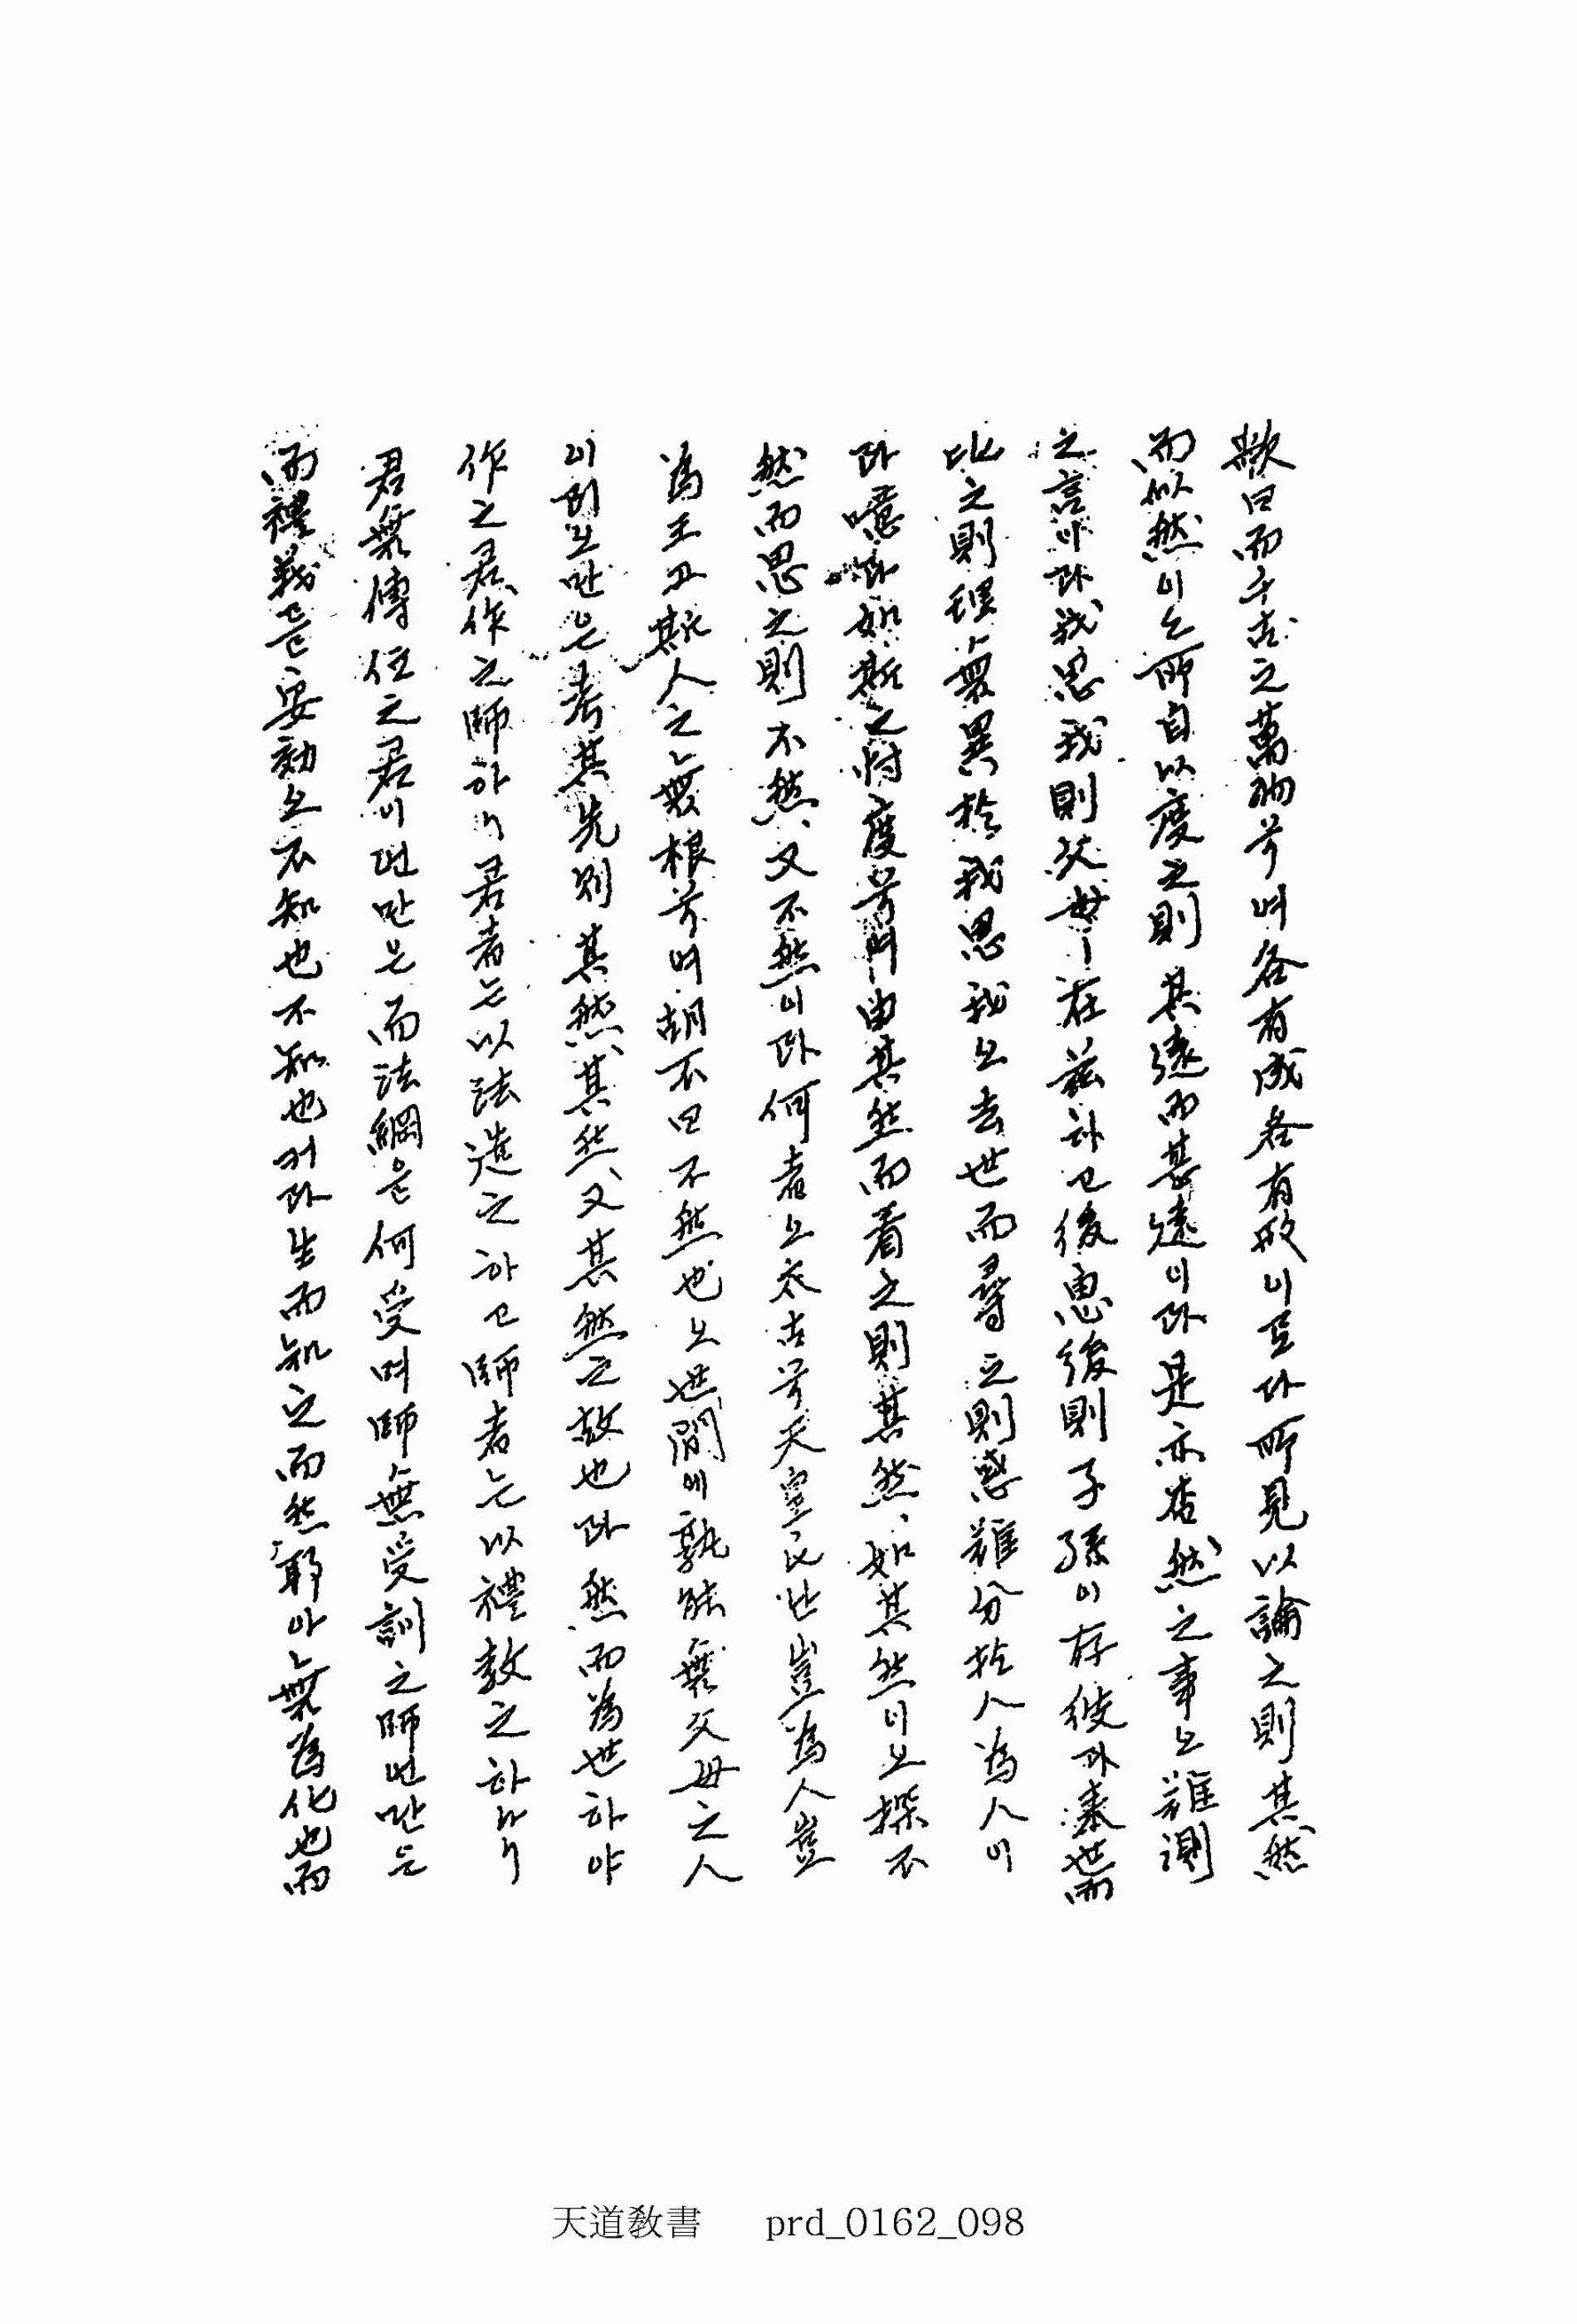 歌曰而千古之萬物兮여各有成各有形이로다所見以論之則其然
而似然이요所自以度之則其遠而甚遠이라是亦杳然之事오難測
之言이라我思我則父母ㅣ在玆하고後思後則子孫이存彼라來世而
比之則理無異於我思我오去世而尋之則惑難分於人爲人이
라噫라如斯之忖度兮여由其然而看之則其然、如其然이오探不
然而思之則不然、又不然이라何者오太古兮天皇氏난豈爲人豈
爲王고斯人之無根兮여胡不曰不然也오世間에孰能無父母之人
이리오만은考其先則其然、其然、又其然之故也라然而爲世하야
作之君作之師하니君者는以法造之하고師者는以禮敎之하나니
君無傳位之君이연만은而法綱은何受며師無受訓之師연만는
而禮義은安效오不知也不知也커라生而知之而然耶아無爲化也而
天道敎書 prd_0162_098